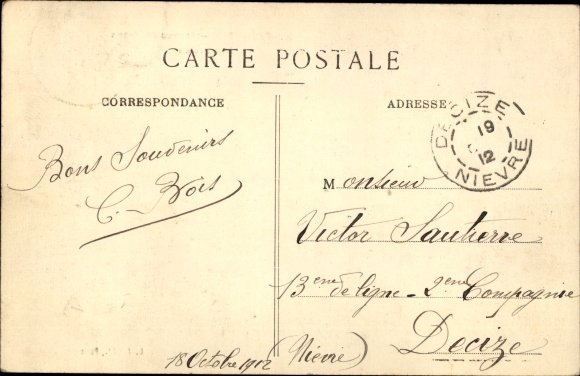 CARTE POSTALE
CORRESPONDANCE
ADRESSE
DECIZE
19
12
NIEVRE
Bons Souvenirs
C. Bois
Monsieur
Victor Sautierre
13eme de ligne - 2eme Compagnie
Decize
(Nièvre)
18 Octobre 1912